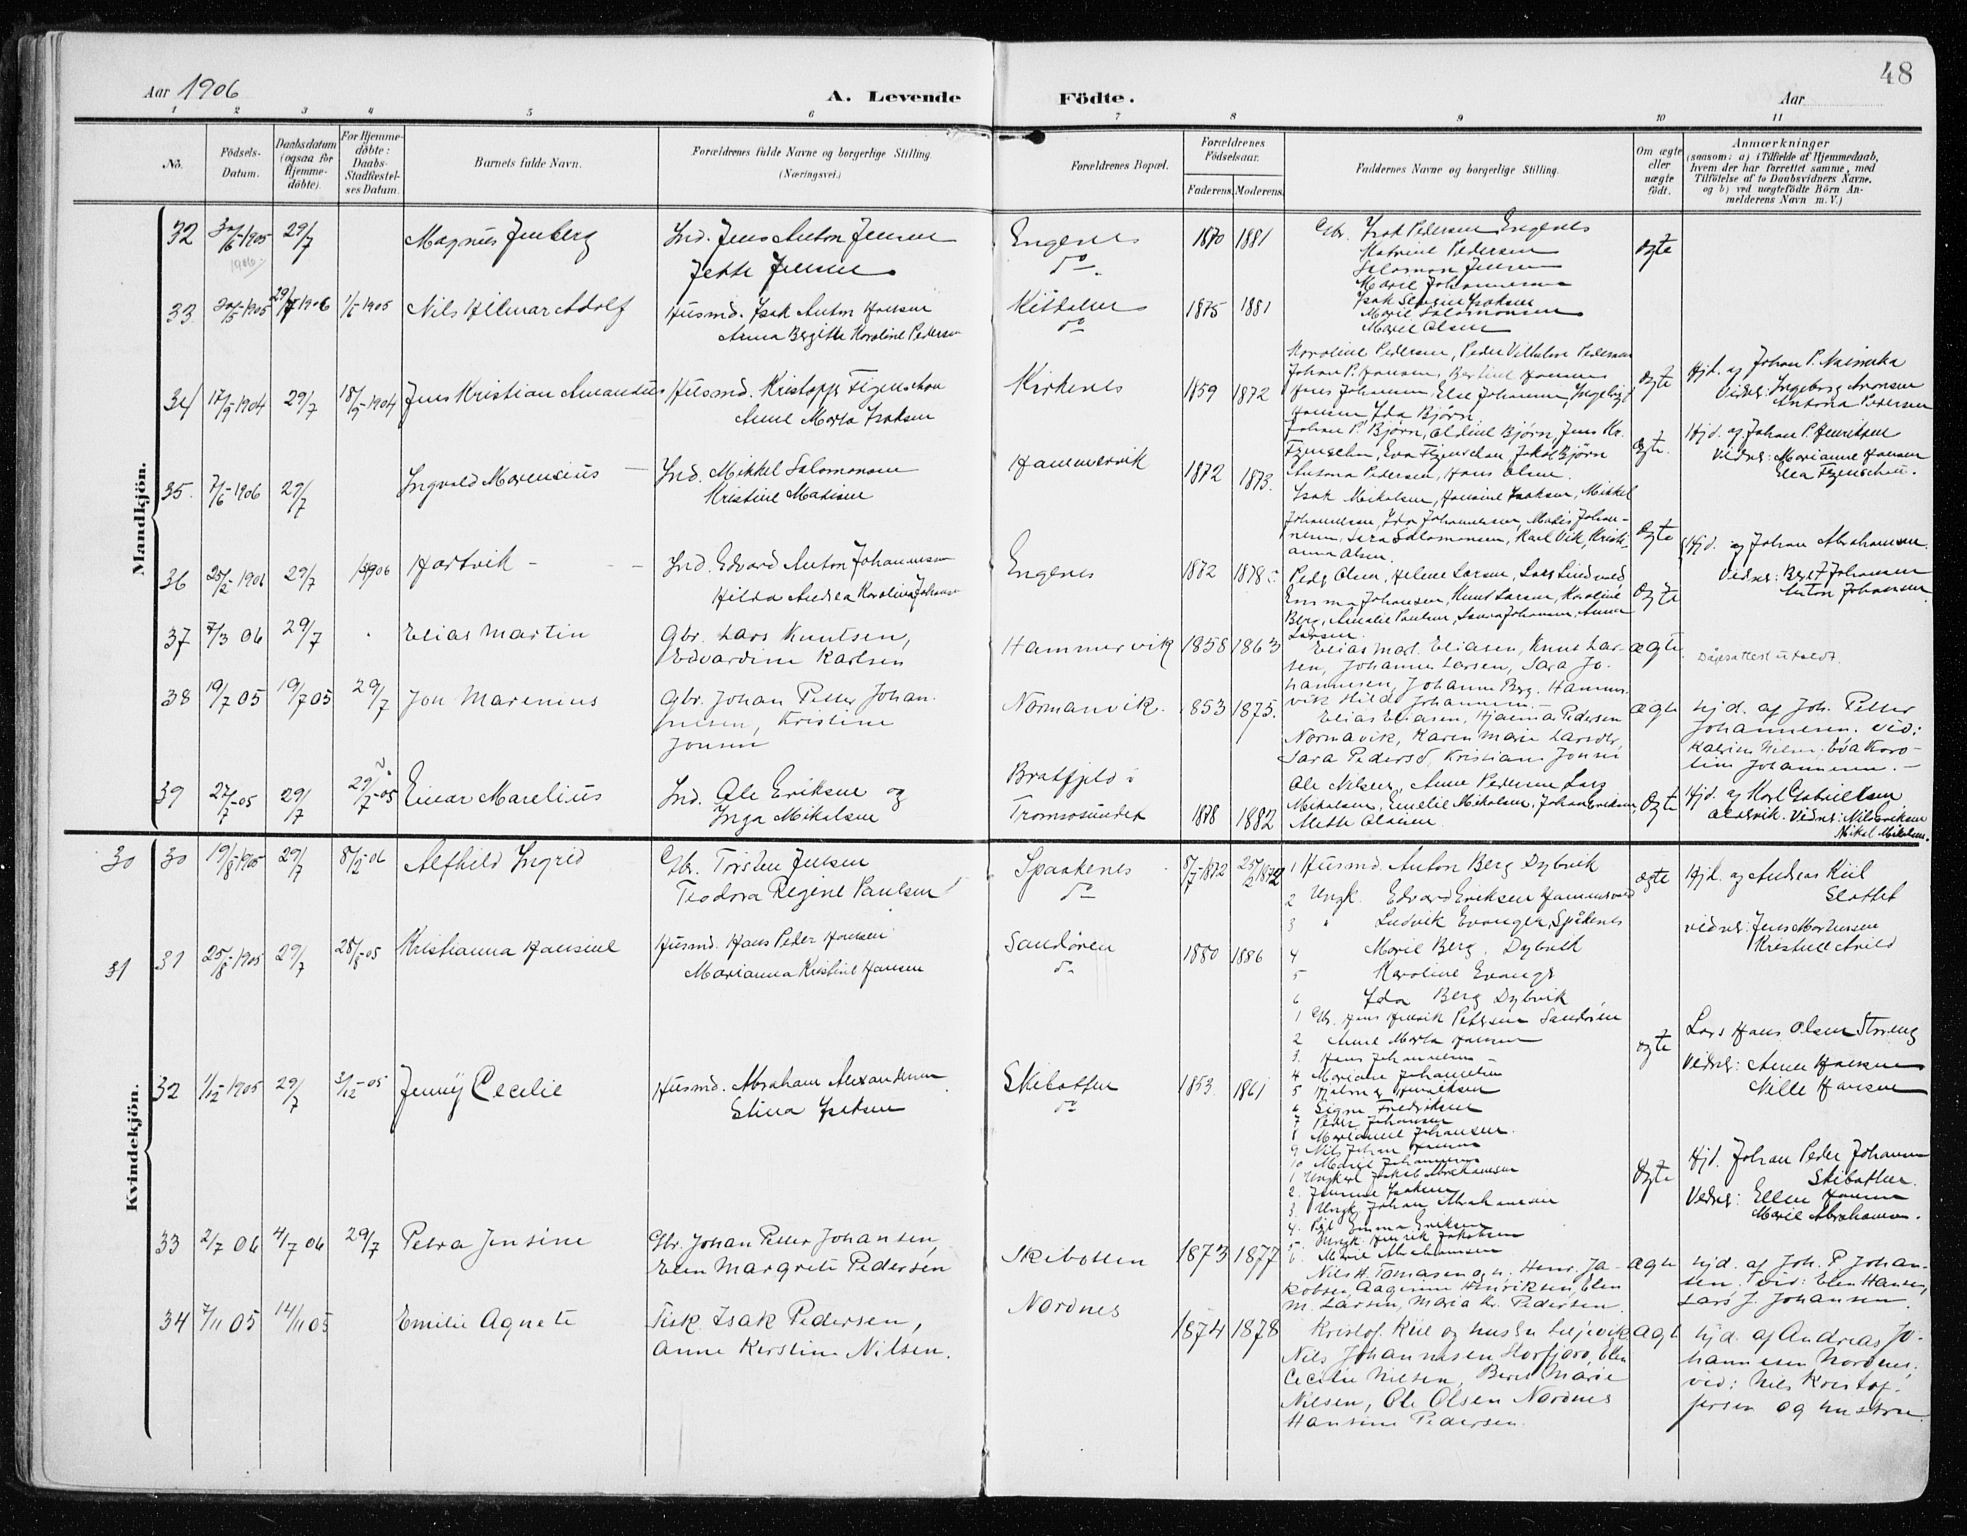 48
Aar 1906
A. Levende
Födte.
Aar
1 2 3 4 5 6 7 8 9 10 11
No.
Födsels-
Datum.
Daabsdatum
(ogsaa for
Hjemme-
döbte).
For Hjemme-
döbte:
Daabs-
Stadfæstel-
ses Datum.
Barnets fulde Navn.
Forældrenes fulde Navne og borgerlige Stilling.
(Næringsvei.)
Forældrenes Bopæl.
Forældrenes
Födselsaar.
Faderens.
Moderens.
Faddernes Navne og borgerlige Stilling.
Om ægte
eller
uægte
födt.
Anmærkninger
(saasom: a) i Tilfælde af Hjemmedaab,
hvem der har forrettet samme, med
Tilföielse af to Daabsvidners Navne,
og b) ved uægtefödte Börn An-
melderens Navn m. V.)
Mandkjön.
32 30/6 1905 29/7 Magnus Jenberg Ind. Jens Anton Jensen Engenes 1870 1881 Gbr. Isak Pedersen Engenes ægte
1906 Jette Jensen do Katrine Pedersen
Salomon Jensen
Marie Johannesen
33 30/5 1905 29/7 1906 1/6 1905 Nils Hilmar Adolf Husmd. Isak Anton Hansen Kitdalen 1875 1881 Isak Isaksen
Anna Bergitte Karoline Pedersen do Marie Salomonsen
Marie Olsen
Karoline Pedersen, Peder Vilhelm Pedersen
34 17/9 1904 29/7 18/9 1904 Jens Kristian Amandus Husmd. Kristoffer Figenschou Kirkenes 1859 1872 Johan P. Hansen, Bertine Hansen ægte Hjd. af Johan P. Naimaka
Anne Marta Isaksen Jens Johansen, Else Johansen, Ingeborg Vidner: Ingeborg Aronsen
Hansen, Ida Bjørn Antona Pedersen
Johan P. Bjørn, Oldine Bjørn, Jens Kr.
35. 7/6 1906 29/7 Ingvald Marensius Ind. Mikkel Salomonsen Hammervik 1872 1873. Figenschou, Eva Figenschou, Jakob Bjørn ægte. Hjd. af Johan P. Henriksen
Kristine Madisen Antona Pedersen, Hans Olsen. Vidner: Marianne Hansen
Isak Mikalsen, Hansine Isaksen, Mikkel Ella Figenschou.
Johannesen, Ida Johannesen, Madis Johan-
nesen, Sara Salomonsen, Karl Vik, Kristi-
anna Olsen
36 29/7 Hartvik Ind. Edvard Anton Johannesen Engenes 1872 1878 Peder Olsen, Helene Larsen, Lars Lindvald, ægte Hjd. af Johan Abrahamsen.
Hilda Andrea Karolina Johansen Emma Johansen, Knut Larsen, Karoline Vidner: Johansen
Berg, Amalie Paulsen, Laura Johansen, Anne Anton Johansen
Larsen.
37 7/3 06 29/7 Elias Martin Gbr. Lars Knutsen, Hammervik 1858 1863 Elias Mart. Eliasen, Knut Lar- ægte Dåpsattest utstedt.
Edvardine Karlsen sen, Johanne Larsen, Sara Jo-
hannesen, Johanne Berg. Hammer-
38 19/7 05 19/7 05 29/7 Jon Marenius Gbr. Johan Petter Johan- Normanvik. 1853 1875. vik Hilda Johannesen. ægte Hjd. af Joh. Petter
nesen, Kristine Elias Eliasen, Hjalmar Pedersen Johannesen. vid:
Jonsen Normavik, Karen Marie
Sara Pedersd, Kristian Jonsen
39 27/7-05 29/7 29/7-05 Einar Marelius Ind. Ole Eriksen og Bratfjeld i 1878 1882 Ole Nilsen, Anne Pedersen Lars ægte Hjd. af Karl Gabrielsen
Inga Mikalsen Tromsosundet Mikalsen, Emelie Mikalsen, Johan Eriksen, Vidner: Nils Eriksen
Mette Olsen. Mikal Mikalsen.
Kvindekjön.
30 30 19/8 1905 29/7 8/2 06 Alfhild Ingrid Gbr. Torsten Jensen Spaakenes 8/7-1872 25/2 1872 1 Husmd. Anton Berg Dybvik ægte Hjd. af Andreas Kiil
Teodora Regine Paulsen do 2 Ungk. Edvard Eriksen Slottet
3 " Ludvik Evanger Spåkenes vidner: Jens Mortensen
4 Marie Berg. Dybvik Kristine Arild
5 Karoline Evanger
6 Ida Berg Dybvik
31 31 25/8 1905 29/7 28/8-05 Kristianna Hansine Husmd. Hans Peder Hansen Sandøren 1880 1886 1 Gbr. Jens Henrik Petersen Sandøren ægte Lars Hans Olsen Storeng
Marianna Kristine Hansen do 2 Anne Marta Hansen Vidner: Anne Hansen
3. Hans Johannesen Nille Hansen
4 Mariane Johannesen
5 Hjalmar Henriksen
6 Signe Fredriksen
7 Peder Johansen
8 Marianne Johansen.
9 Nils Johan Hansen
10 Marie Johannesen
32 1/12 1905 29/7 3/12-05 Jenny Cecilie Husmd. Abraham Alexandersen Skibotten 1853 1861 1 Ungkarl Jakob Abrahamsen ægte Hjd. Johan Peder Johansen
Stina Isaksen do 2. Isaksen Skibotten.
3. Ungk. Johan Abrahamsen Vidner: Ellen Hansen
4. Pige Emma Eriksen Marie Abrahamsen.
5. Ungk. Henrik Jakobsen
6. Marie Abrahamsen
33 2/7 06 4/7 06 29/7 Petra Jensine Gbr. Johan Petter Johansen, Skibotten 1873 1877 Nils H. Tomasen og h. Henr. Ja- ægte Hjd. af Joh. P. Johan-
Elen Margrete Pedersen kobsen, Henriksen, Elen sen. vid: Elen Hansen,
M. Larsen, Maria Kr. Pedersen. Lars J. Johansen.
34 7/11 05 14/11 05 Emilie Agnete Fisk. Isak Pedersen, Nordnes 1874 1878 Kristof. Kiil og hustru ægte Hjd. af Andreas Jo-
Anne Kerstine Nilsen. Nils Johannesen Storfjord, Elen hannesen Nordnes.
Cecilie Nilsen, Berit Marie vid: Nils Kristof-
Nilsen, Ole Olsen Nordnes fersen og hustru.
Hansine Pedersen.